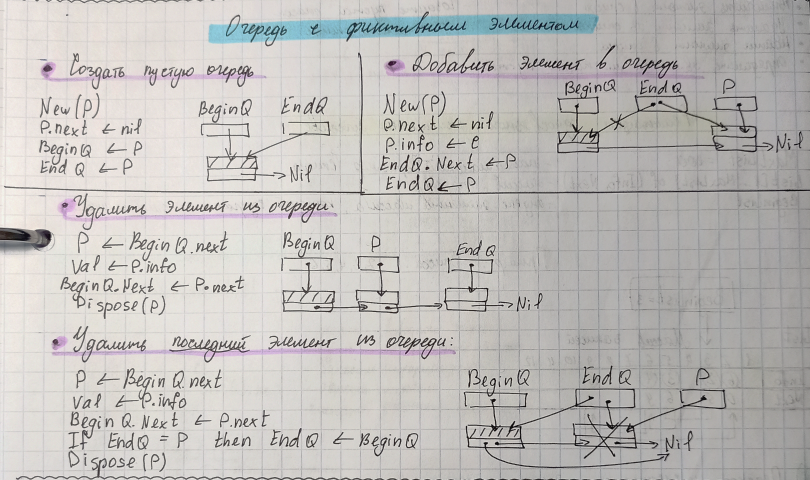 Очередь с фиктивным элементом
• Создать пустую очередь
New(P)
P.next ← nil
BeginQ ← P
EndQ ← P
BeginQ EndQ
Nil
• Добавить элемент в очередь
New(P)
P.next ← nil
P.info ← e
EndQ.Next ← P
EndQ ← P
BeginQ EndQ P
Nil
• Удалить элемент из очереди:
P ← BeginQ.next
Val ← P.info
BeginQ.Next ← P.next
Dispose(P)
BeginQ P EndQ
Nil
• Удалить последний элемент из очереди:
P ← BeginQ.next
Val ← P.info
BeginQ.Next ← P.next
If EndQ = P then EndQ ← BeginQ
Dispose(P)
BeginQ EndQ P
Nil